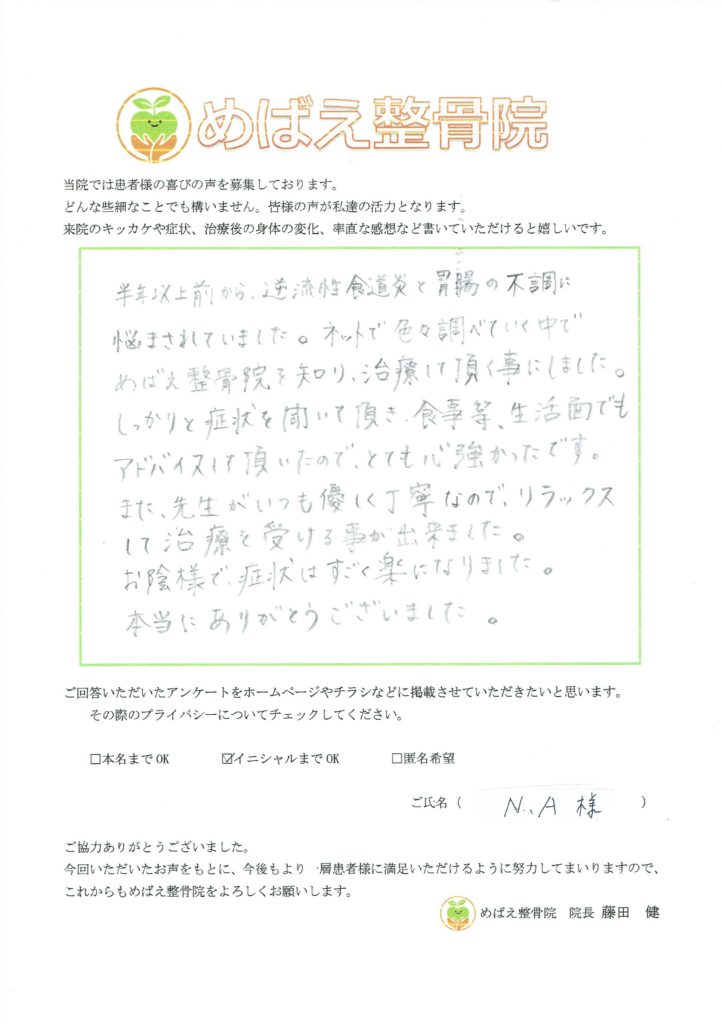 めばえ整骨院
当院では患者様の喜びの声を募集しております。
どんな些細なことでも構いません。皆様の声が私達の活力となります。
来院のキッカケや症状、治療後の身体の変化、率直な感想など書いていただけると嬉しいです。
半年以上前から、逆流性食道炎と胃腸の不調に
悩まされていました。ネットで色々調べていく中で
めばえ整骨院を知り、治療して頂く事にしました。
しっかりと症状を聞いて頂き、食事等、生活面でも
アドバイスして頂いたので、とても心強かったです。
また、先生がいつも優しく丁寧なので、リラックス
して治療を受ける事が出来ました。
お陰様で、症状はすごく楽になりました。
本当にありがとうございました。
ご回答いただいたアンケートをホームページやチラシなどに掲載させていただきたいと思います。
その際のプライバシーについてチェックしてください。
□本名までOK ☑イニシャルまでOK □匿名希望
ご氏名（ N.A 様 ）
ご協力ありがとうございました。
今回いただいたお声をもとに、今後もより一層患者様に満足いただけるように努力してまいりますので、
これからもめばえ整骨院をよろしくお願いします。
めばえ整骨院 院長 藤田 健